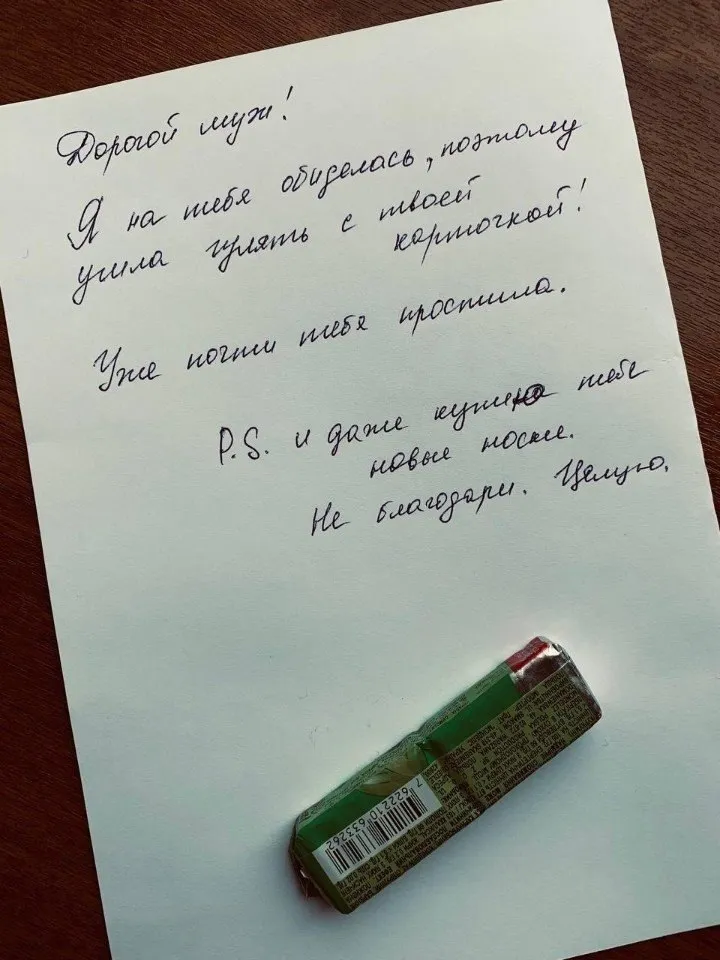 Дорогой муж!
Я на тебя обиделась, поэтому
ушла гулять с твоей
карточкой!
Уже почти тебя простила.
P.S. и даже купила тебе
новые носки.
Не благодари. Целую.
7622210633262